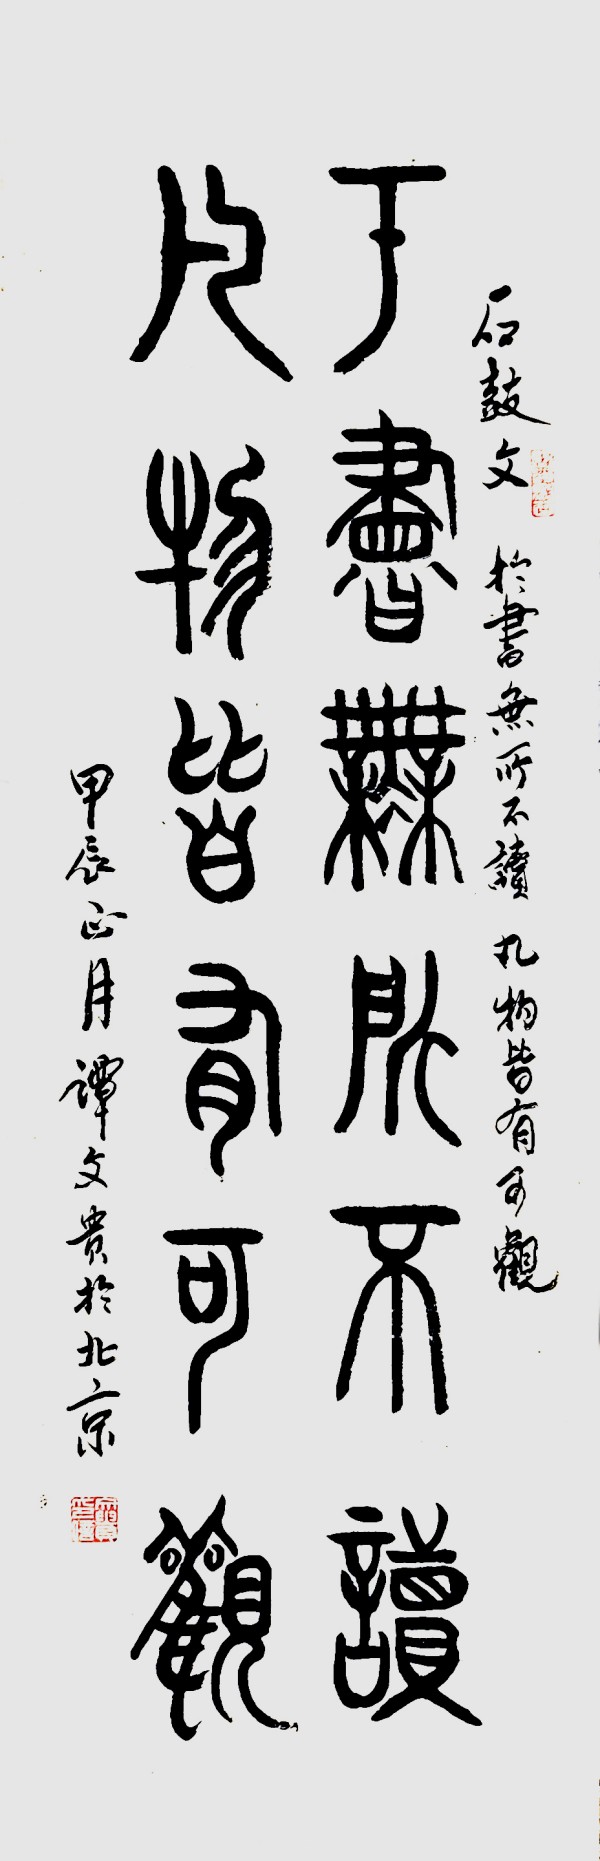 石鼓文 於書無所不讀 凡物皆有可觀
于書無所不讀
凡物皆有可觀
甲辰正月譚文貴於北京